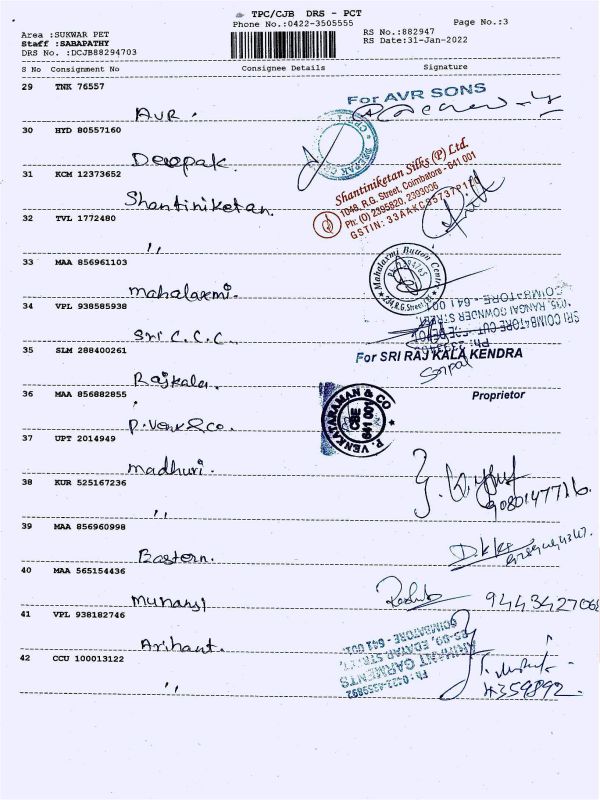 TPC/CJB DRS - PCT
Phone No.:0422-3505555
Page No.:3
Area :SUKWAR PET
RS No.:882947
Staff :SABAPATHY
RS Date:31-Jan-2022
DRS No. :DCJB88294703
S No Consignment No Consignee Details Signature
29 TNK 76557
For AVR SONS
AVR.
30 HYD 80557160
Deepak.
31 KCM 12373652
Shantiniketan Silks (P) Ltd.
1048, R.G. Street, Coimbatore - 641 001
Ph: (O) 2395820, 2393036
Shantiniketan.
32 TVL 1772480
,,
33 MAA 856961103
Mahalaxmi Button Centre
mahalaxmi.
34 VPL 938585938
SRI COIMBATORE CUT
RANGAI GOWNDER STREET,
COIMBATORE - 641 001
Sri C.C.C.
35 SLM 288400261
For SRI RAJ KALA KENDRA
Rajkala.
36 MAA 856882855
Proprietor
P. VENKATARAMAN & CO
CBE
641 001
P. Venk & co.
37 UPT 2014949
Madhuri.
38 KUR 525167236
,,
39 MAA 856960998
Eastern.
40 MAA 565154436
9443427068
41 VPL 938182746
Arihant.
ARIHANT GARMENTS
EDAYAR STREET,
COIMBATORE - 641 001
Ph : 0422-4359892
42 CCU 100013122
,,
4359892.